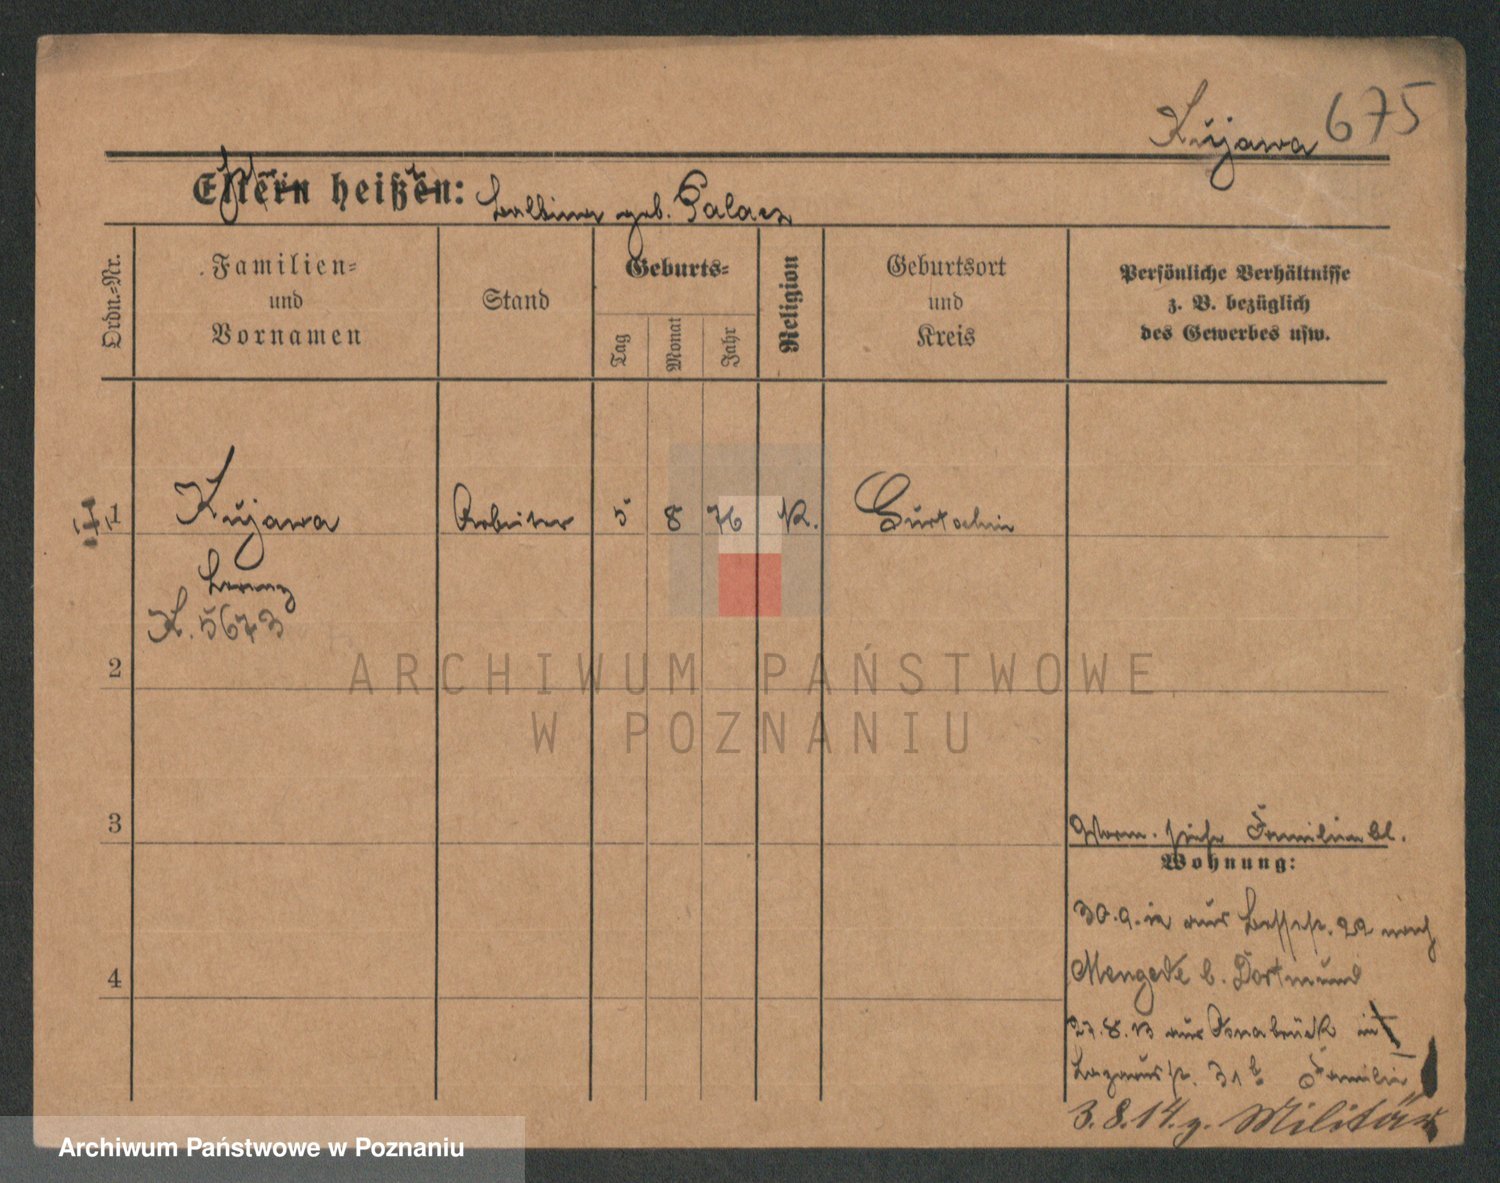 Kujawa 675
Eltern heißen: Balbina geb. Palacz
Ordn.-Nr.
Familien-
und
Vornamen
Stand
Geburts-
Tag
Monat
Jahr
Religion
Geburtsort
und
Kreis
Persönliche Verhältnisse
z. B. bezüglich
des Gewerbes usw.
1 Kujawa Arbeiter 5 8 76 K. Gurtschin
Lorenz
K. 5673
2
ARCHIWUM PAŃSTWOWE
W POZNANIU
3
siehe Familienbl.
Wohnung:
30.9.12 aus 22 nach
4
Mengede b. Dortmund
27.8.13 aus Osnabrück in
Lazarusstr. 31b Familie
3.8.14. z. Militär
Archiwum Państwowe w Poznaniu